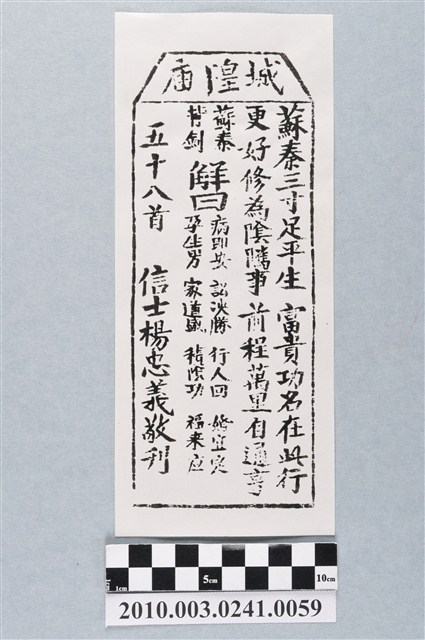 城隍庙
蘇秦三寸足平生 富貴功名在此行
更好修為陰隲事 前程萬里自通亨
蘇秦背劍
解曰
病即安 訟決勝 行人回 婚宜定
孕生男 家道盛 積陰功 福来应
五十八首 信士楊忠義敬刊
1cm 5cm 10cm
2010.003.0241.0059